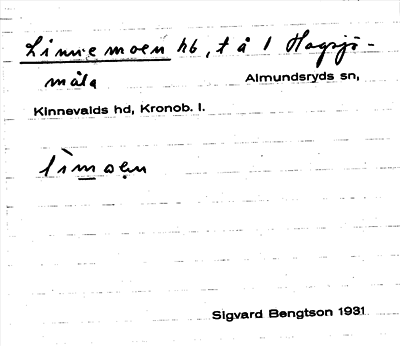 Linnemoen hb, t å 1 Hagsjö-
måla
Almundsryds sn,
Kinnevalds hd, Kronob. l.
lìmoen
Sigvard Bengtson 1931